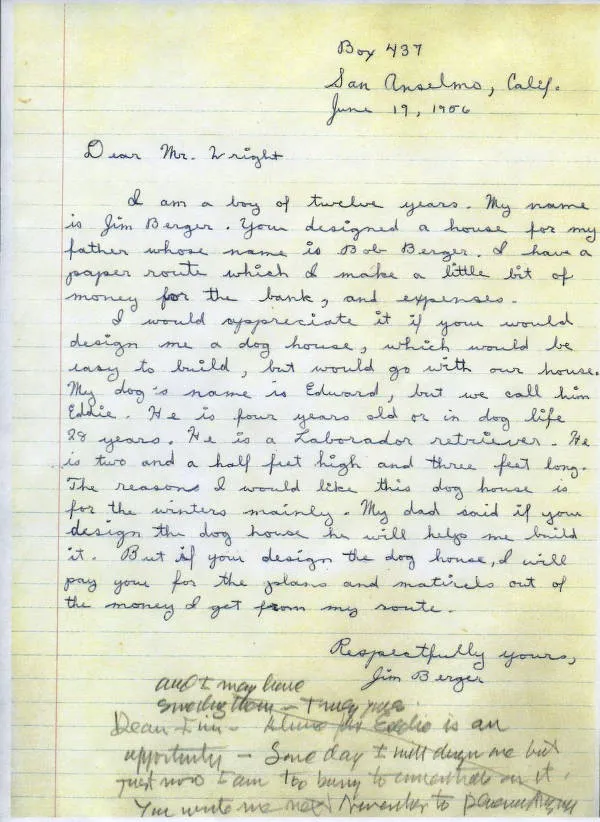 Box 437
San Anselmo, Calif.
June 19, 1956
Dear Mr. Wright
I am a boy of twelve years. My name
is Jim Berger. You designed a house for my
father whose name is Bob Berger. I have a
paper route which I make a little bit of
money for the bank, and expenses.
I would appreciate it if you would
design me a dog house, which would be
easy to build, but would go with our house.
My dog's name is Edward, but we call him
Eddie. He is four years old or in dog life
28 years. He is a Laborador retriever. He
is two and a half feet high and three feet long.
The reasons I would like this dog house is
for the winters mainly. My dad said if you
design the dog house he will helps me build
it. But if you design the dog house, I will
pay you for the plans and matirels out of
the money I get from my route.
Respectfully yours,
Jim Berger
and I may have
something then — Truly yours
Dear Jim — A house for Eddie is an
opportunity — Some day I will design one but
just now I am too busy to concentrate on it.
You write me next November to Phoenix Arizona